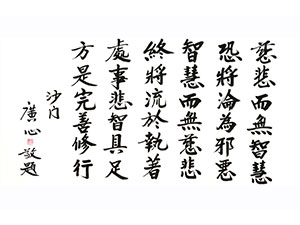 慈悲而無智慧
恐將淪為邪惡
智慧而無慈悲
終將流於執著
處事悲智具足
方是完善修行
沙门
廣心敬題